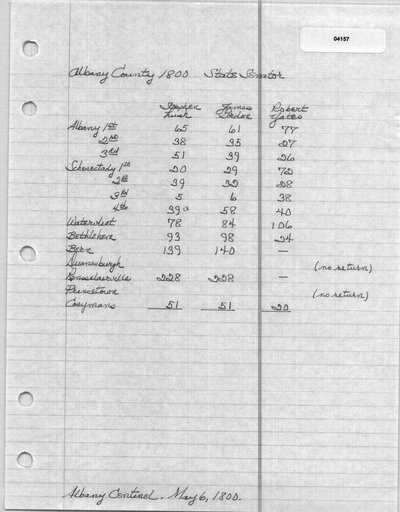 04157
Albany County 1800 State Senator
Stephen James Robert
Lush Gordon Yates
Albany 1st 65 61 77
2nd 38 35 27
3rd 51 39 26
Schenectady 1st 20 29 72
2nd 39 32 28
3rd 5 6 38
4th 39 58 40
Watervliet 78 84 106
Bethlehem 93 98 24
Bern 139 140 —
Duanesburgh (no return)
Rensselaerville 228 228 —
Princetown (no return)
Coeymans 51 51 20
Albany Centinel. May 6, 1800.